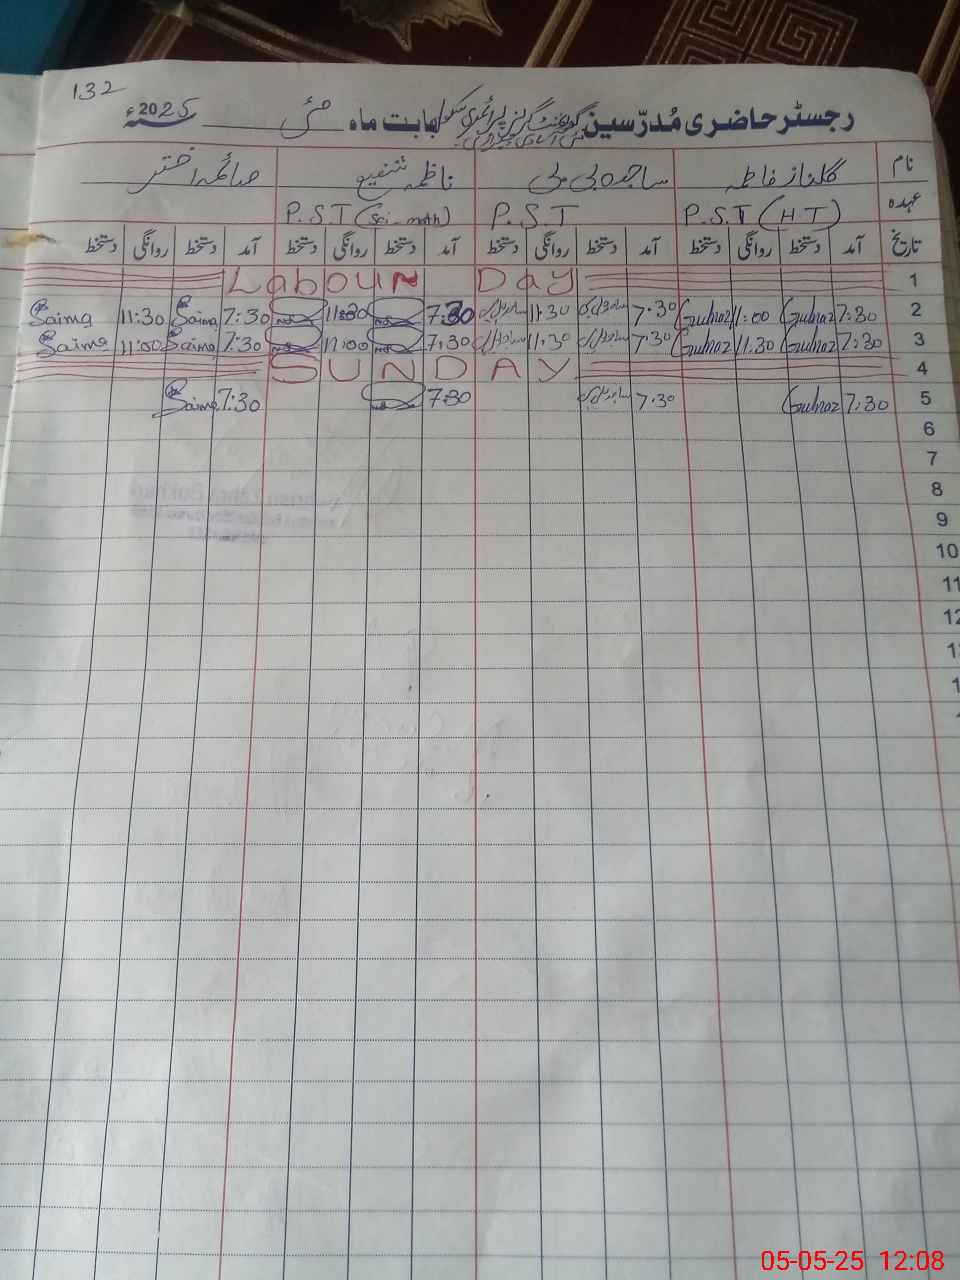 132
رجسٹر حاضری مُدرّسین گورنمنٹ گرلز پرائمری سکول بابت ماہ مئی 2025ء
نام گلناز فاطمہ ساجدہ بی بی ناظمہ شفیع صائمہ اختر
عہدہ P.S.T (H.T) P.S.T P.S.T (Sci-math)
تاریخ آمد دستخط روانگی دستخط آمد دستخط روانگی دستخط آمد دستخط روانگی دستخط آمد دستخط روانگی دستخط
1 Labour Day
2 7:30 Gulnaz 11:00 Gulnaz 7.30 ساجدہ بی بی 11:30 ساجدہ بی بی 7:30 11:30 7:30 Saima 11:30 Saima
3 7:30 Gulnaz 11.30 Gulnaz 7.30 ساجدہ بی بی 11:30 ساجدہ بی بی 7:30 11:00 7:30 Saima 11:00 Saima
4 SUNDAY
5 7:30 Gulnaz 7.30 ساجدہ بی بی 7:30 7:30 Saima
6
7
8
9
10
11
12
05-05-25 12:08